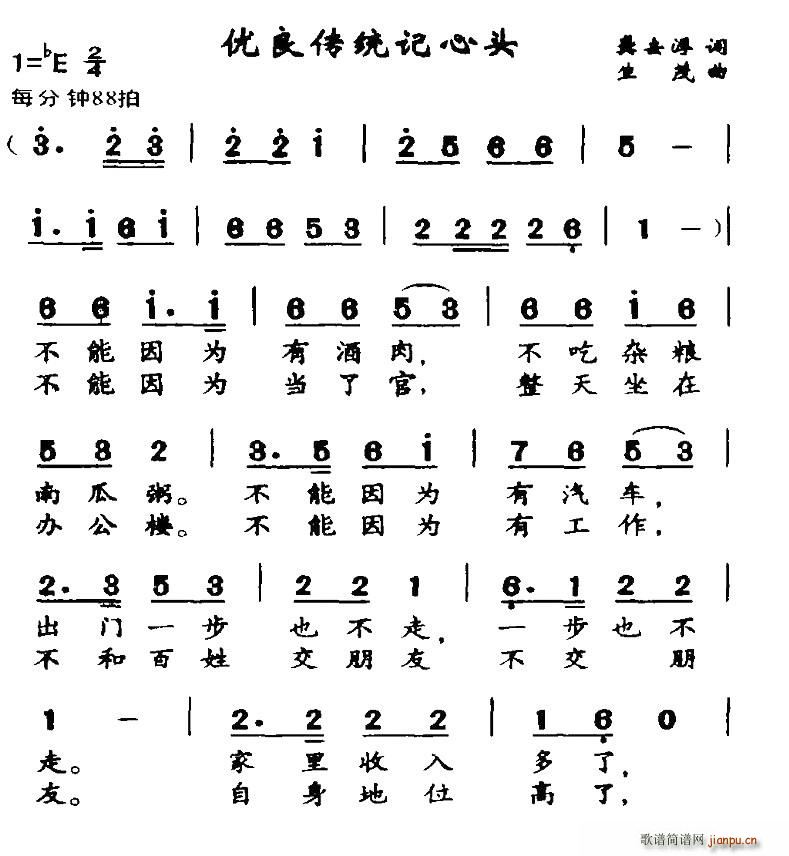 优良传统记心头
1=♭E 2/4
词
生 茂 曲
每分钟88拍
(3̇. 2̇ 3̇ | 2̇ 2̇ 1̇ | 2̇ 5 6 6 | 5 - |
1̇. 1̇ 6 1̇ | 6 6 5 3 | 2 2 2 2 6̣ | 1 - )|
6 6 1̇. 1̇ | 6 6 5 3 | 6 6 1̇ 6
不能因为 有酒肉, 不吃杂粮
不能因为 当了官, 整天坐在
5 3 2 | 3. 5 6 1̇ | 7 6 5 3 |
南瓜粥。 不能因为 有汽车,
办公楼。 不能因为 有工作,
2. 3 5 3 | 2 2 1 | 6̣. 1 2 2 |
出门一步 也不走, 一步也不
不和百姓 交朋友, 不交 朋
1 - | 2. 2 2 2 | 1 6̣ 0 |
走。 家里收入 多了,
友。 自身地位 高了,
歌谱简谱网 jianpu.cn